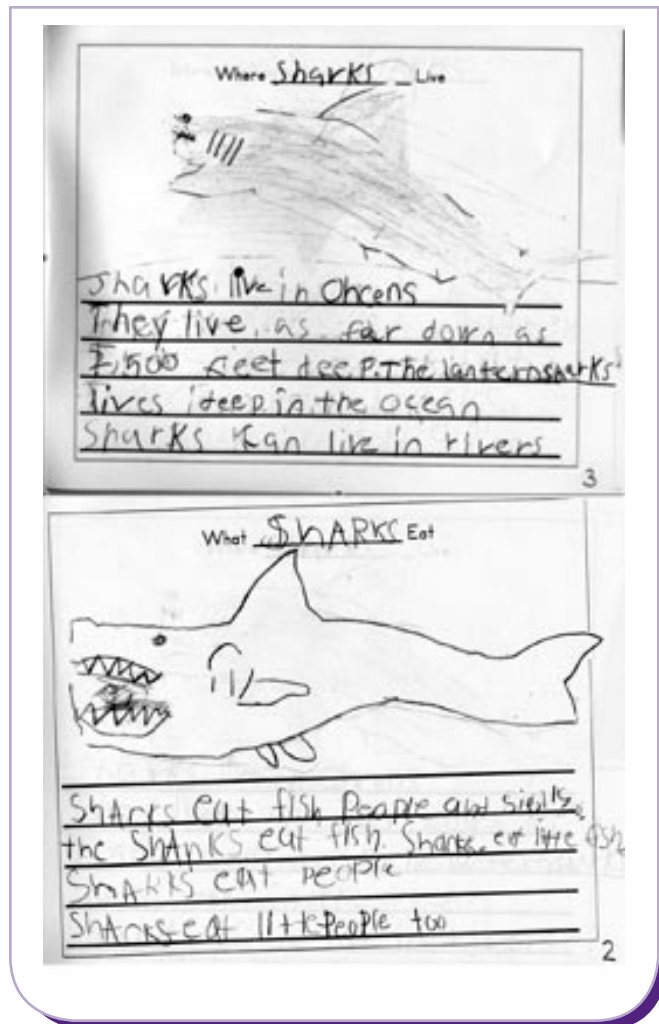 Where Sharks Live
Sharks live in Ohcens
They live as far down as
7,500 feet deep. The lanternsharks
lives deep in the ocean
Sharks kan live in rivers
3
What SHARKS Eat
ShArcs eat fish People and
the ShArKS eat fish. Sharks eat little fish
ShARKS eat people
ShArcs eat little People too
2